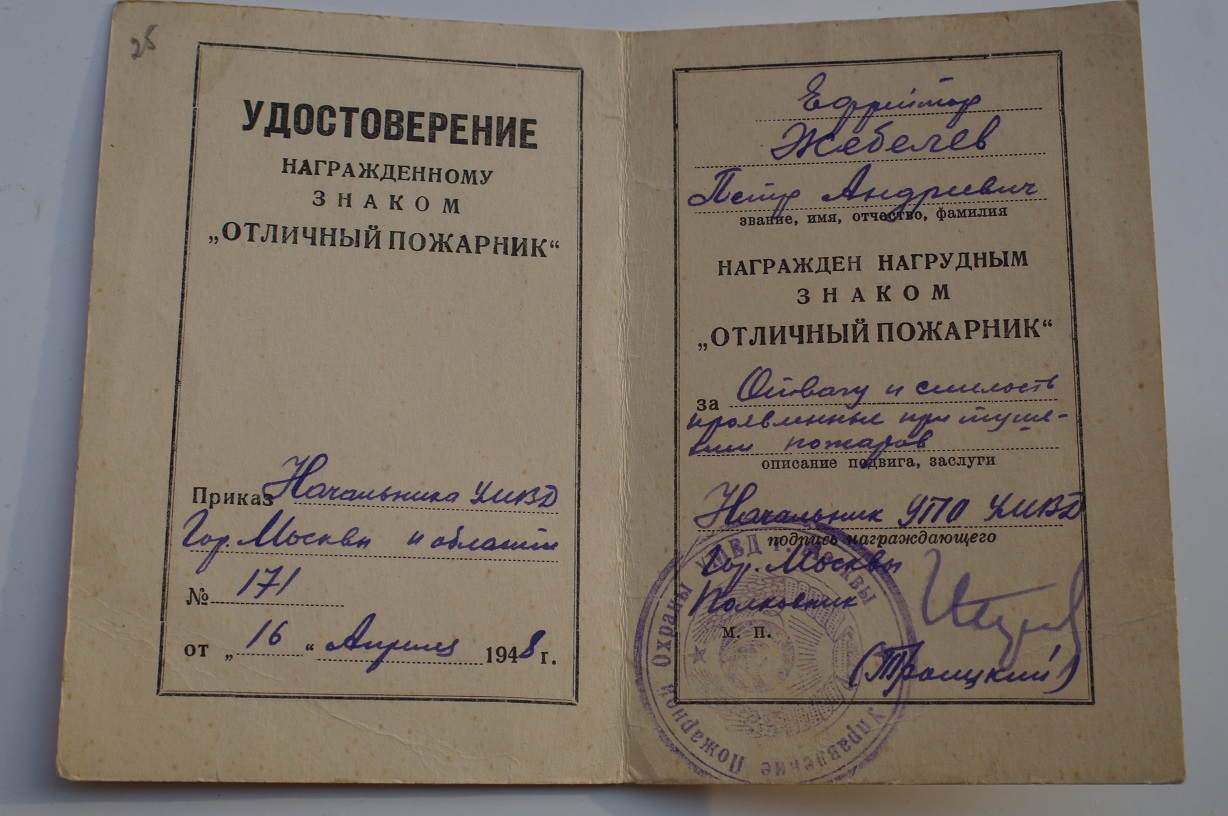 25
УДОСТОВЕРЕНИЕ
НАГРАЖДЕННОМУ
ЗНАКОМ
„ОТЛИЧНЫЙ ПОЖАРНИК“
Приказ Начальника УМВД
Гор. Москвы и области
№ 171
от „16“ Апреля 1948 г.
Ефрейтор
Жебелев
Петр Андреевич
звание, имя, отчество, фамилия
НАГРАЖДЕН НАГРУДНЫМ
ЗНАКОМ
„ОТЛИЧНЫЙ ПОЖАРНИК“
за Отвагу и смелость
проявленные при туше-
нии пожаров
описание подвига, заслуги
Начальник УПО УМВД
подпись награждающего
Гор. Москвы
Полковник
м. п.
(Троицкий)
Управление Пожарной Охраны Москвы